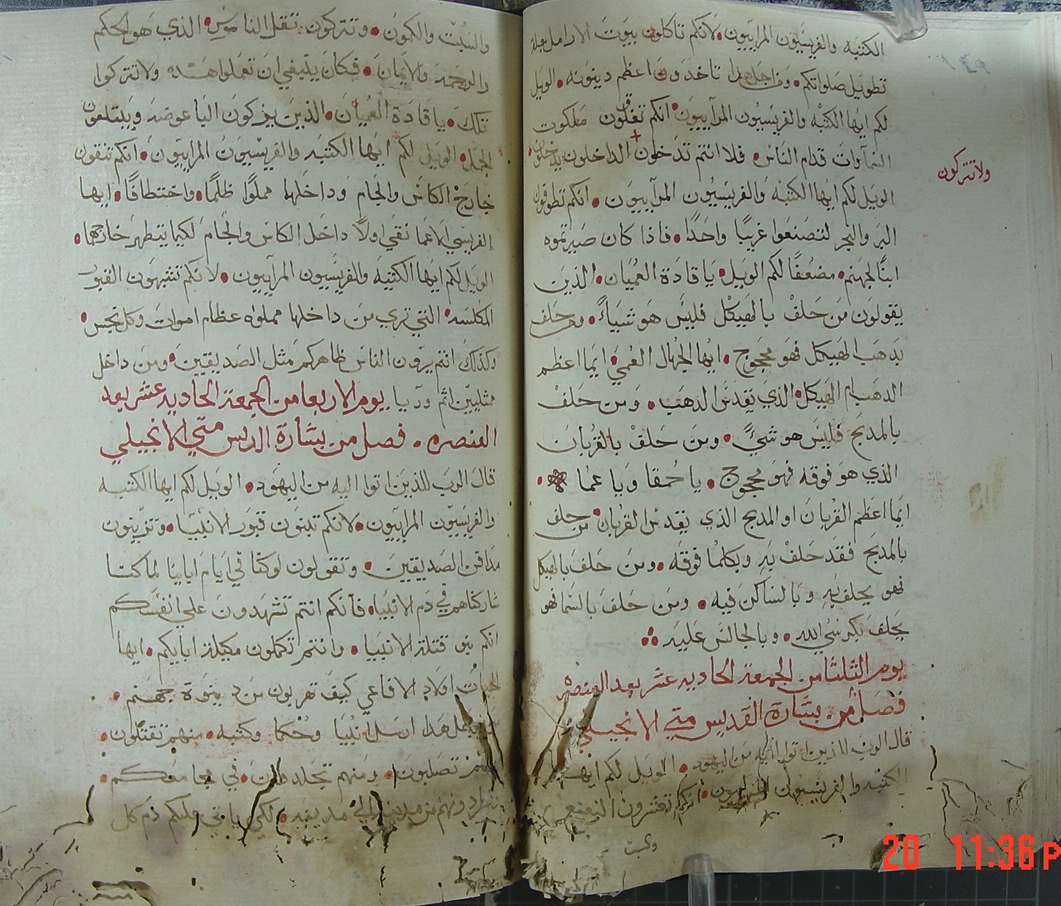 الكتبه والفريسيون المراييون لانكم تاكلون بيوت الارامل بعلة
تطويل صلواتكم ومن اجل هذا تاخذون اعظم دينونه الويل
لكم ايها الكتبه والفريسيون المراييون انكم تغلقون ملكوت
السماوات قدام الناس فلا انتم تدخلون الداخلون يدخلون
ولا تتركون
الويل لكم ايها الكتبه والفريسيون المراييون انكم تطوفون
البر والبحر لتصنعوا غريبًا واحدًا فاذا كان صيرتموه
ابنًا لجهنم مضعفًا لكم الويل يا قادة العميان الذين
يقولون من حلف بالهيكل فليس هو شياءً ومن حلف
بذهب الهيكل فهو محجوج ايها الجهال العمي ايما اعظم
الذهب ام الهيكل الذي يقدس الذهب ومن حلف
بالمذبح فليس هو شيءً ومن حلف بالقربان
الذي هو فوقه فهو محجوج يا حمقا ويا عما
ايما اعظم القربان او المذبح الذي يقدس القربان من حلف
بالمذبح فقد حلف به وبكلما فوقه ومن حلف بالهيكل
فهو يحلف به وبالساكن فيه ومن حلف بالسما فهو
يحلف بكرسي الله وبالجالس عليه
يوم الثلثا من الجمعة الحاديه عشر بعد العنصره
فصل من بشارة القديس متي الانجيلي
قال الرب للذين اتوا اليه من اليهود الويل لكم ايها
الكتبه والفريسيون المراييون انكم تعشرون النعنع
والسبت والكمون وتتركون تقل الناموس الذي هو الحكم
والرحمة والايمان فكان ينبغي ان تعملوا هذه ولا تتركوا
تلك يا قادة العميان الذين يزكون الباعوضه ويبتلعون
الجمل الويل لكم ايها الكتبه والفريسيون المراييون انكم تنقون
خارج الكاس والجام وداخلها مملوًا ظلمًا واختطافًا ايها
الفريسي الاعما نقي اولًا داخل الكاس والجام لكيما يتطهر خارجهما
الويل لكم ايها الكتبه والفريسيون المراييون لانكم تشبهون القبور
المكلسه التي تري من داخلها مملوه عظام اموات وكل نجس
وكذلك انتم يرون الناس ظاهركم مثل الصديقين ومن داخل
ممتليين اثم وريا يوم الاربعا من الجمعة الحاديه عشر بعد
العنصره فصل من بشارة القديس متي الانجيلي
قال الرب للذين اتوا اليه من اليهود الويل لكم ايها الكتبه
والفريسيون المراييون لانكم تبنون قبور الانبيا وتزينون
مدافن الصديقين وتقولون لو كنا في ايام ابايبا لما كنا
شاركناهم في دم الانبيا فانكم انتم تشهدون علي انفسكم
انكم بنو قتلة الانبيا وانتم تكملون مكيلة ابايكم ايها
الحيات اولاد الافاعي كيف تهربون من دينونة جهنم
ارسل انبيا وحكما وكتبه منهم تقتلون
تصلبون ومنهم تجلدون في مجامعكم
من مدينه الي مدينه لكي ياتي عليكم دم كل